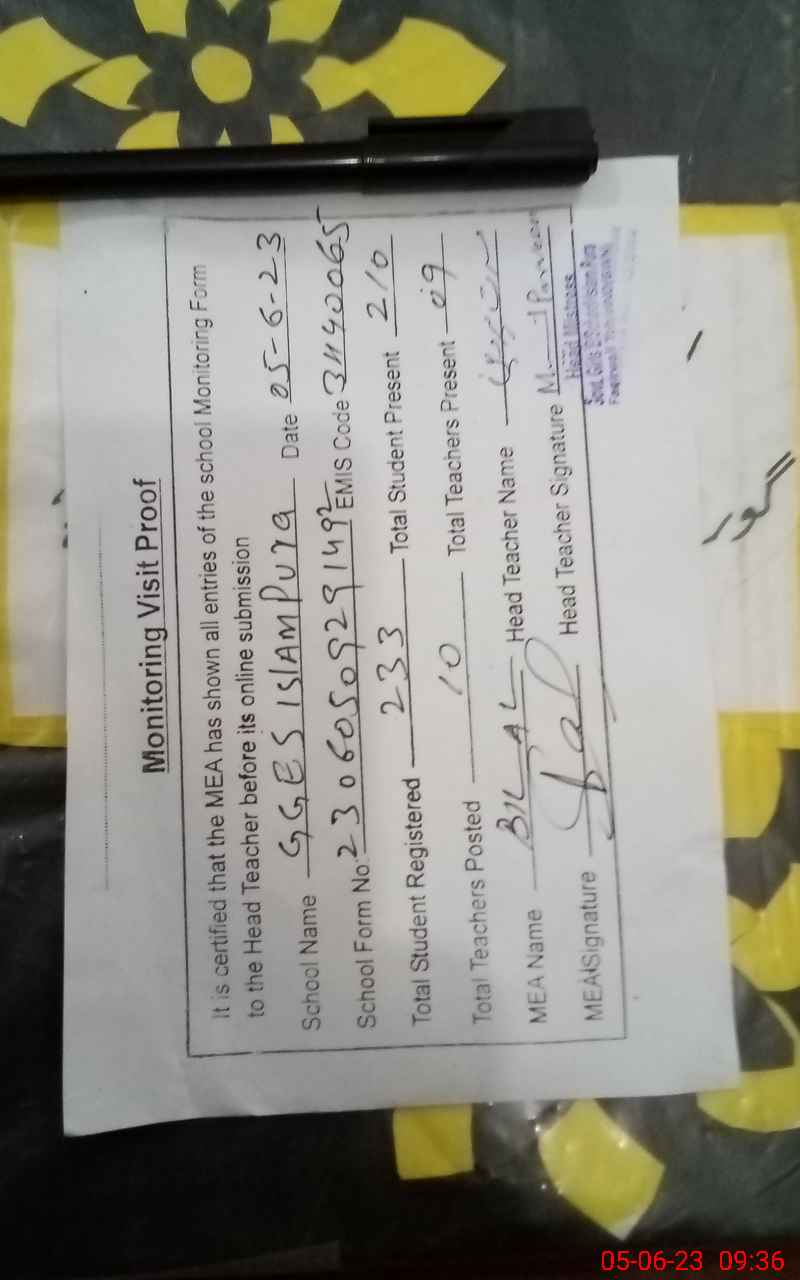 Monitoring Visit Proof
It is certified that the MEA has shown all entries of the school Monitoring Form
to the Head Teacher before its online submission
School Name GGES ISLAMPURA Date 05-6-23
School Form No. 23060509291492 EMIS Code 31140065
Total Student Registered 233 Total Student Present 210
Total Teachers Posted 10 Total Teachers Present 09
MEA Name BILAL Head Teacher Name
MEA Signature Head Teacher Signature
Head Mistress
Govt. Girls
05-06-23 09:36